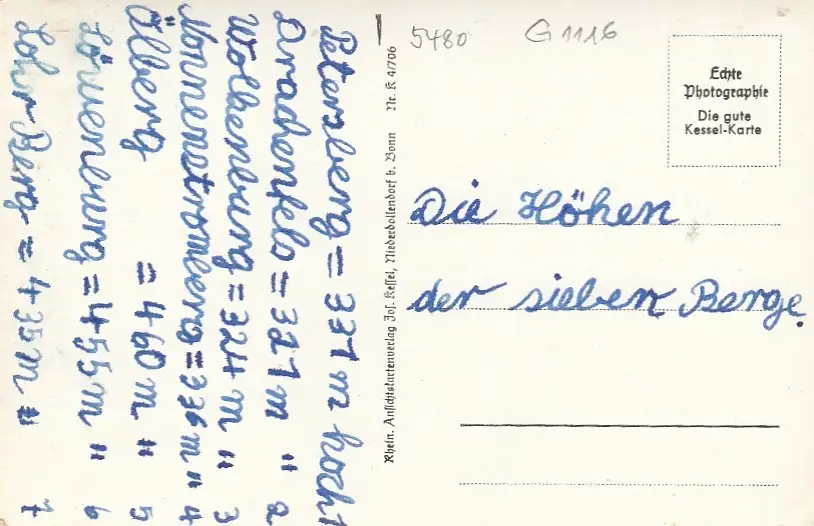 Petersberg = 331 m hoch 1
Drachenfels = 321 m " 2
Wolkenburg = 324 m " 3
Nonnenstromberg = 336 m " 4
Ölberg = 460 m " 5
Löwenburg = 455 m " 6
Lohr Berg = 435 m " 7
Rhein. Ansichtskartenverlag Jos. Kessel, Niederdollendorf b. Bonn Nr. K 4/706
5480 G 1116
Echte
Photographie
Die gute
Kessel-Karte
Die Höhen
der sieben Berge.